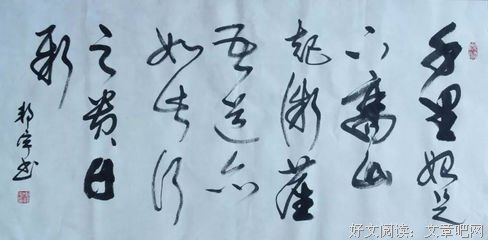 千里始足
下高山
起微塵
吾道亦
如此行
之贵日
新
好文阅读：文章吧网